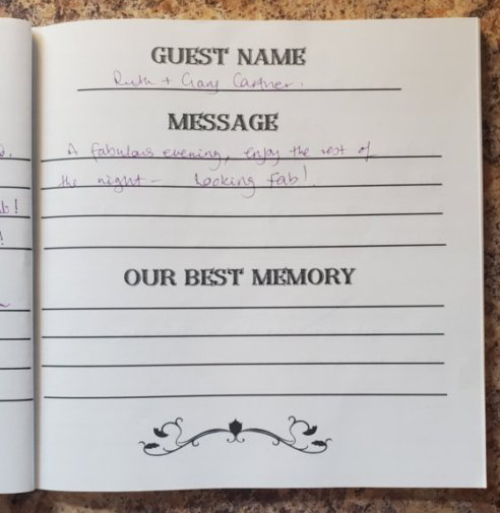 GUEST NAME
Ruth + Gary Cartner.
MESSAGE
A fabulous evening, enjoy the rest of
the night - Looking fab!
OUR BEST MEMORY